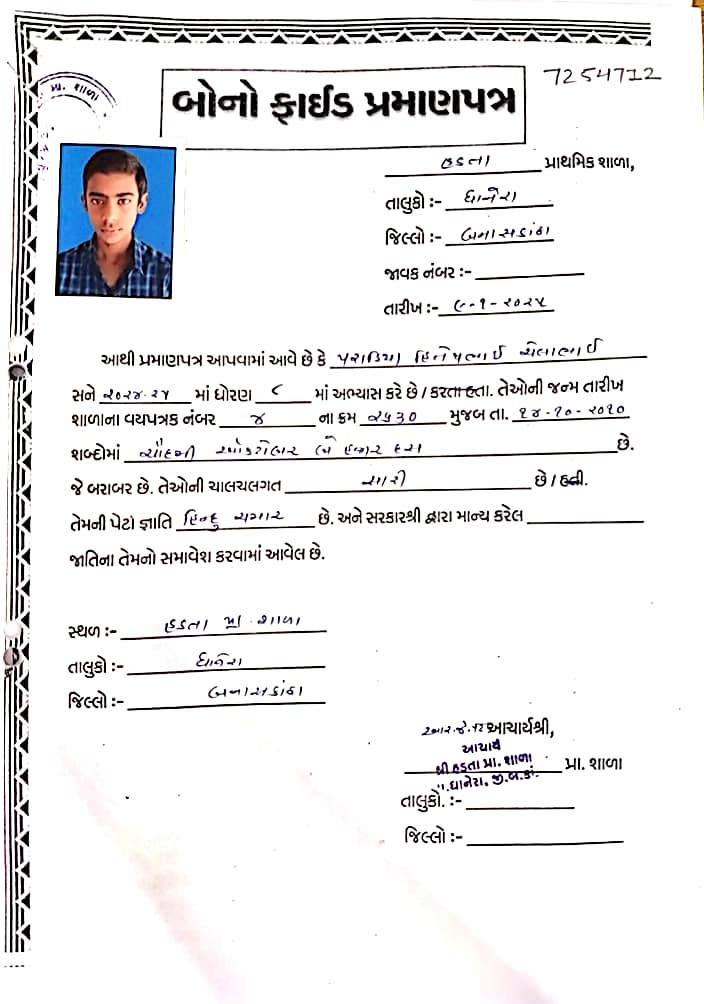 પ્રા. શાળા
7254712
બોનો ફાઈડ પ્રમાણપત્ર
હડતા પ્રાથમિક શાળા,
તાલુકો :- ધાનેરા
જિલ્લો :- બનાસકાંઠા
જાવક નંબર :-
તારીખ :- ૯-૧-૨૦૨૫
આથી પ્રમાણપત્ર આપવામાં આવે છે કે પરાડિયા હિતેષભાઈ ચેલાભાઈ
સને ૨૦૨૪-૨૫ માં ધોરણ ૮ માં અભ્યાસ કરે છે / કરતા હતા. તેઓની જન્મ તારીખ
શાળાના વયપત્રક નંબર ૪ ના ક્રમ ૨૫૩૦ મુજબ તા. ૧૪-૧૦-૨૦૧૦
શબ્દોમાં ચૌદમી ઓક્ટોબર બે હજાર દસ છે.
જે બરાબર છે. તેઓની ચાલચલગત સારી છે / હતી.
તેમની પેટો જ્ઞાતિ હિન્દુ ચમાર છે. અને સરકારશ્રી દ્વારા માન્ય કરેલ
જાતિના તેમનો સમાવેશ કરવામાં આવેલ છે.
સ્થળ :- હડતા પ્રા. શાળા
તાલુકો :- ધાનેરા
જિલ્લો :- બનાસકાંઠા
આચાર્યશ્રી,
આચાર્ય
શ્રી હડતા પ્રા. શાળા
પ્રા. શાળા
તા.ધાનેરા, જી.બ.કાં.
તાલુકો. :-
જિલ્લો :-